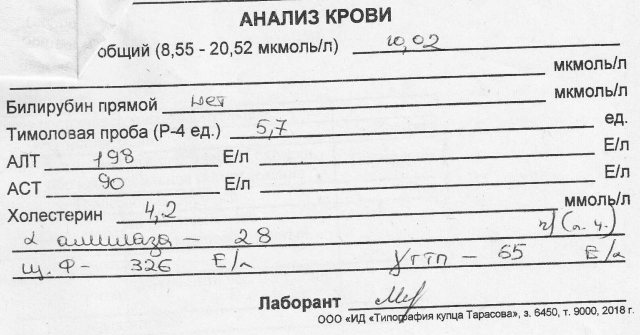 АНАЛИЗ КРОВИ
общий (8,55 - 20,52 мкмоль/л) 10,02
мкмоль/л
Билирубин прямой нет мкмоль/л
Тимоловая проба (Р-4 ед.) 5,7 ед.
АЛТ 198 Е/л Е/л
АСТ 90 Е/л Е/л
Холестерин 4,2 ммоль/л
α амилаза – 28 г/(л.ч.)
щ.Ф – 326 Е/л γГТП – 65 Е/л
Лаборант
ООО «ИД «Типография купца Тарасова», з. 6450, т. 9000, 2018 г.